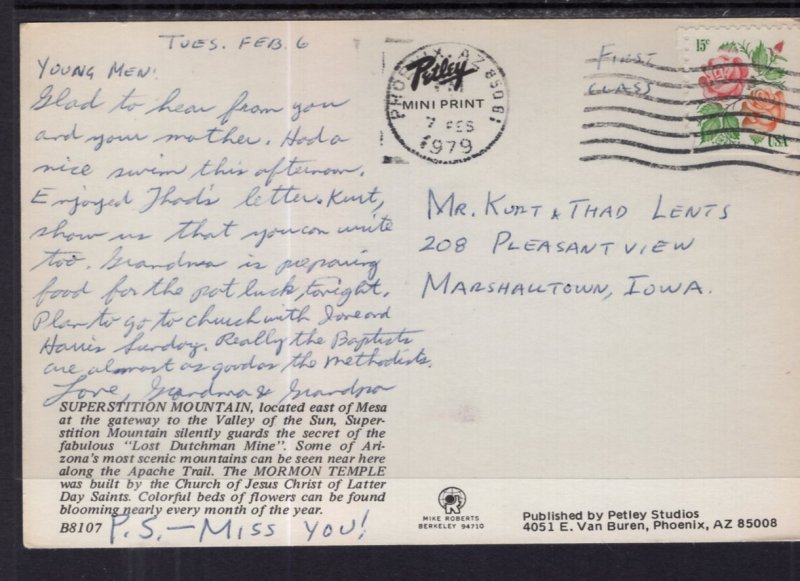 TUES. FEB. 6
YOUNG MEN:
Glad to hear from you
and your mother. Had a
nice swim this afternoon.
Enjoyed Thad's letter. Kurt,
show us that you can write
too. Grandma is preparing
food for the pot luck, tonight.
Plan to go to church with and
Harris Sunday. Really the Baptists
are almost as good as the Methodists.
Love, Grandma & Grandpa
SUPERSTITION MOUNTAIN, located east of Mesa
at the gateway to the Valley of the Sun, Super-
stition Mountain silently guards the secret of the
fabulous "Lost Dutchman Mine". Some of Ari-
zona's most scenic mountains can be seen near here
along the Apache Trail. The MORMON TEMPLE
was built by the Church of Jesus Christ of Latter
Day Saints. Colorful beds of flowers can be found
blooming nearly every month of the year.
B8107
P.S. - MISS YOU!
PHOENIX, AZ 85081
Petley
MINI PRINT
7 FEB
1979
FIRST
CLASS
15c
USA
MR. KURT & THAD LENTS
208 PLEASANT VIEW
MARSHALLTOWN, IOWA.
MIKE ROBERTS
BERKELEY 94710
Published by Petley Studios
4051 E. Van Buren, Phoenix, AZ 85008